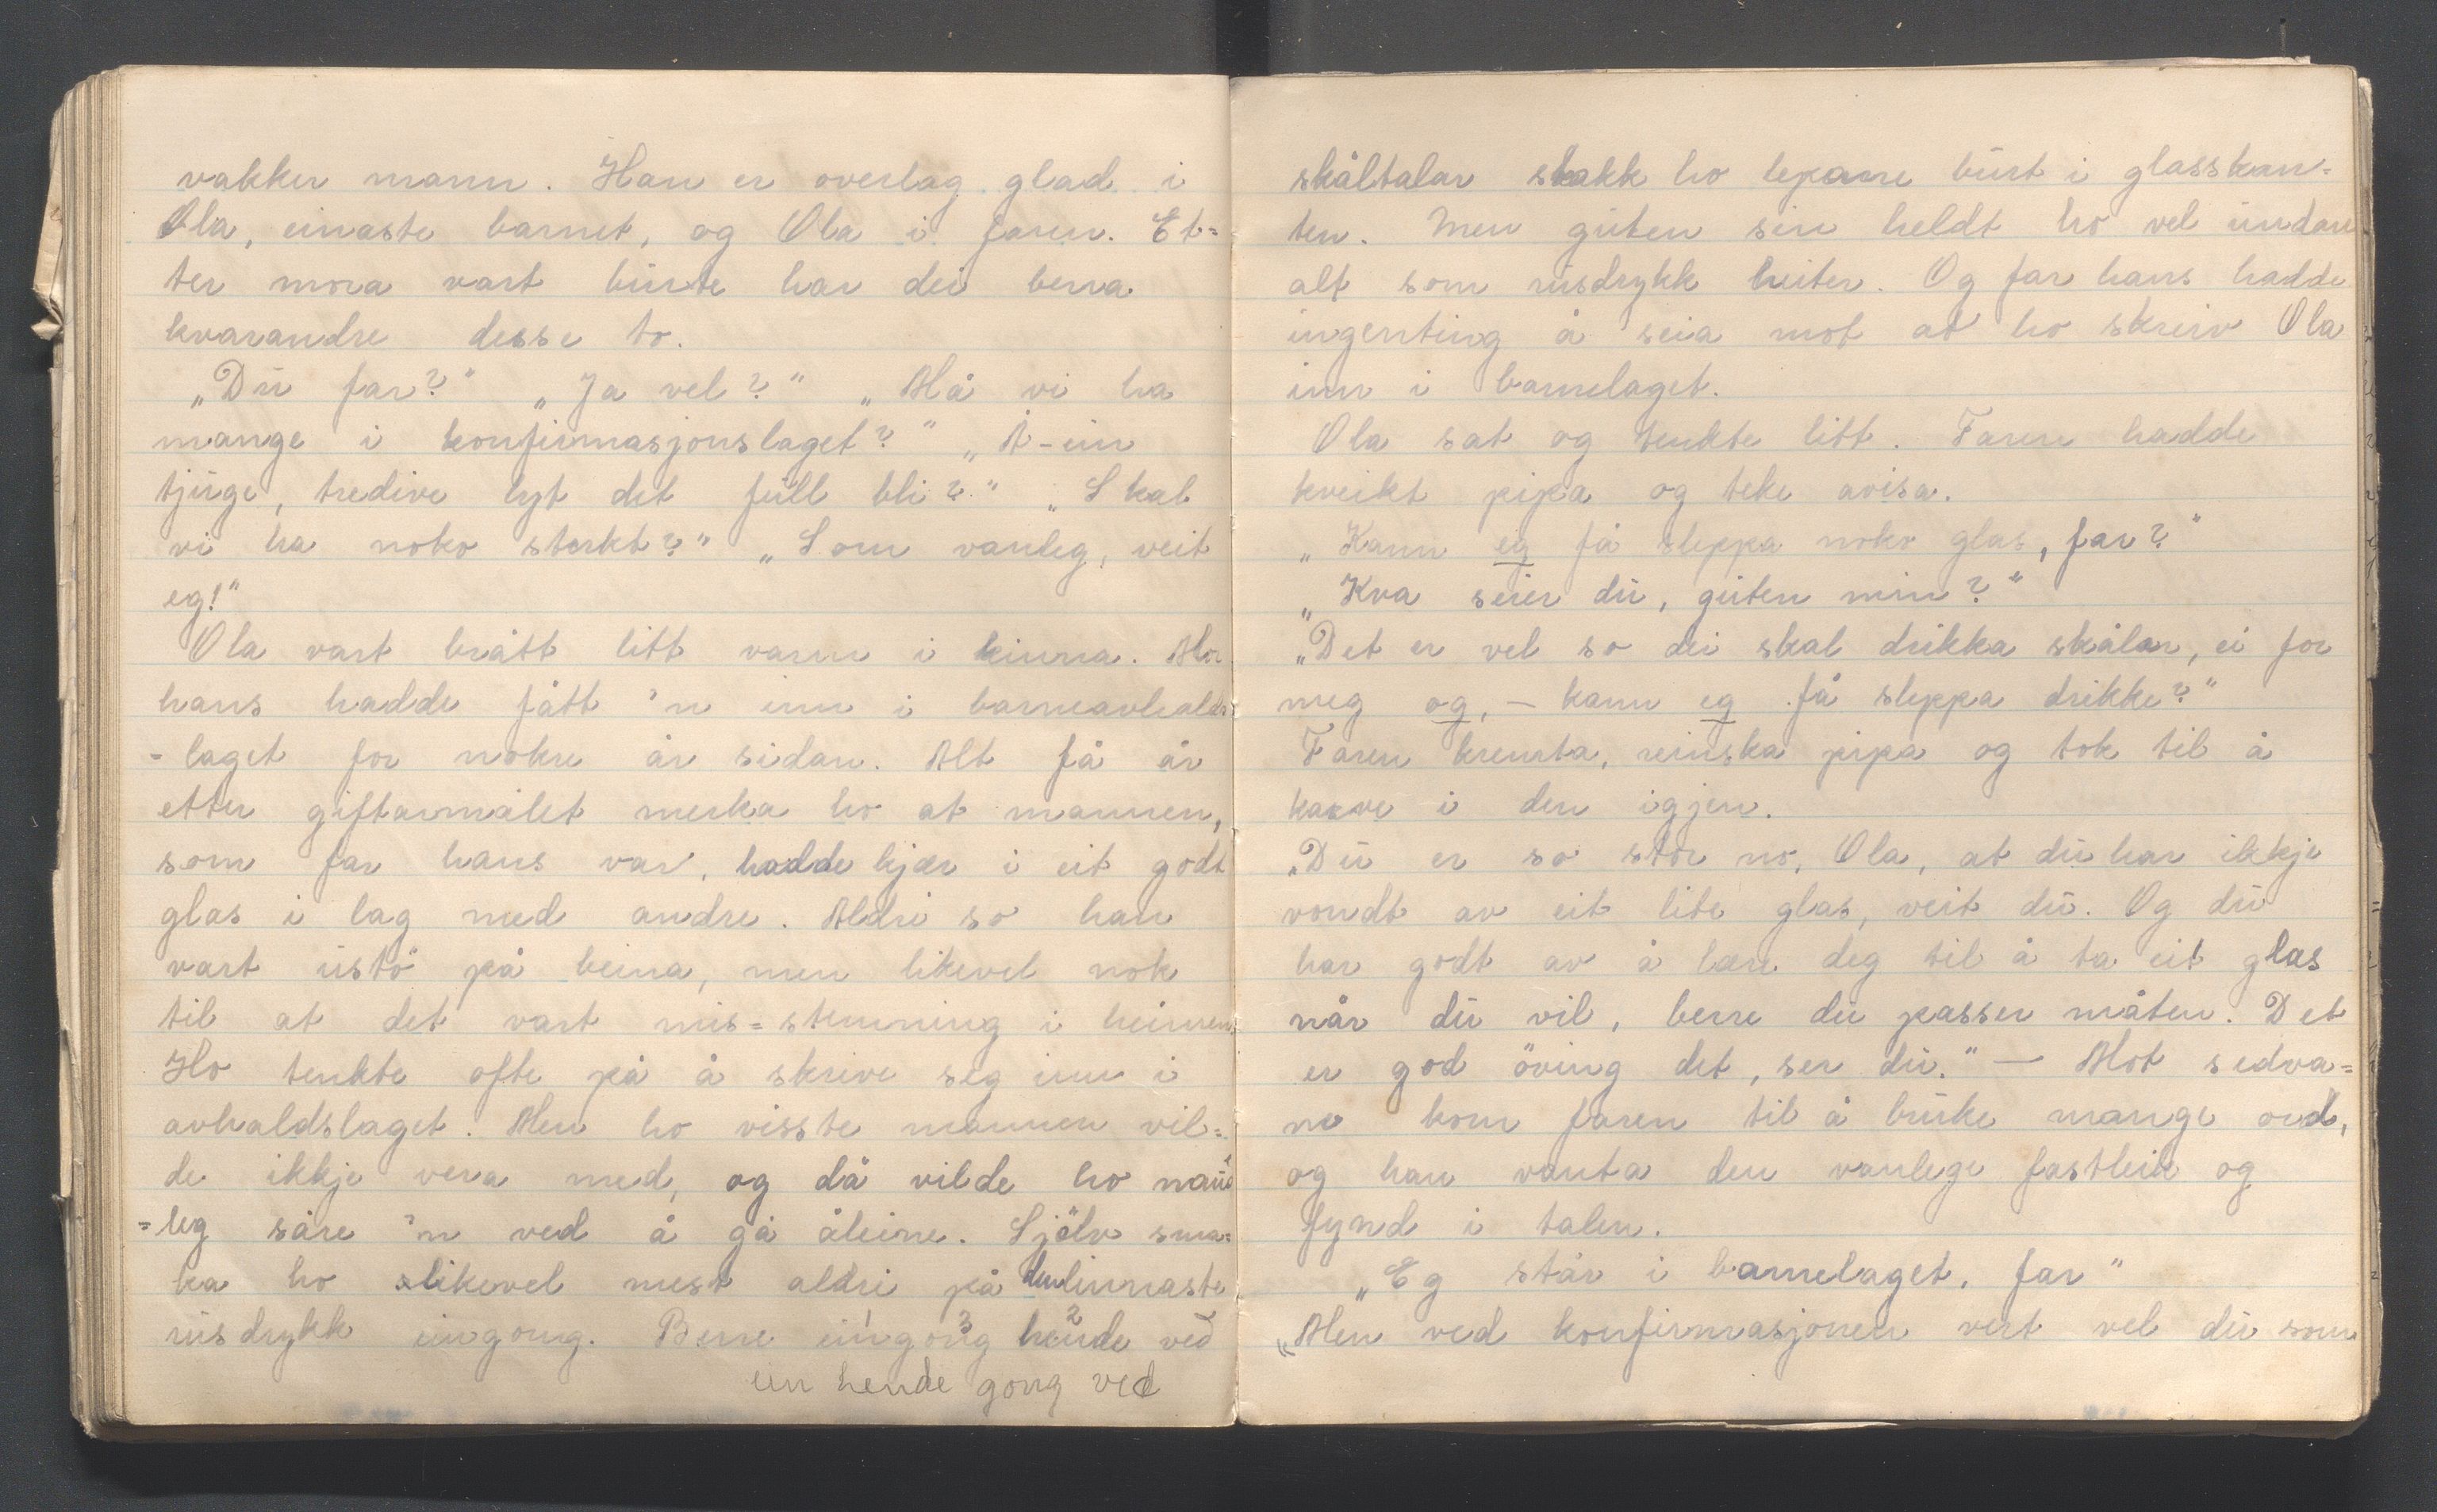 vakker mann. Han er overlag glad i
Ola, einaste barnet, og Ola i faren. Et=
ter mora vart burte har dei berra
kvarandre desse to.
„Du far?" „Ja vel?" „Må vi ha
mange i konfirmasjonslaget?" „Å-ein
tjuge, tredive lyt det full bli?" „Skal
vi ha noko sterkt?" „Som vanleg, veit
eg!"
Ola vart brått litt varm i kinna. Mor
hans hadde fått 'n inn i barneavhalds
-laget for nokre år sidan. Alt få år
etter giftarmålet merka ho at mannen,
som far hans var, hadde kjær i eit godt
glas i lag med andre. Aldri so han
vart ustö på beina, men likevel nok
til at det vart mis=stemning i heimen
Ho tenkte ofte på å skrive seg inn i
avhaldslaget. Men ho visste mannen vil=
de ikkje vera med, og då vilde ho naud
=leg såre 'n ved å gå åleine. Sjölv sma=
ka ho likevel mest aldri på den linnaste
rusdrykk eingong. Berre eingong hende ved
ein hende gong ved
skåltalar stakk ho lepane burt i glasskan=
ten. Men guten sin heldt ho vel undan
alt som rusdrykk heiter. Og far hans hadde
ingenting å seia mot at ho skreiv Ola
inn i barnelaget.
Ola sat og tenkte litt. Faren hadde
kveikt pipa og teke avisa.
„Kann eg få sleppa noko glas, far?"
„Kva seier du, guten min?"
„Det er vel so dei skal drikka skålar, ei for
meg og, – kann eg få sleppa drikke?"
Faren kremta, reinska pipa og tok til å
karve i den igjen.
„Du er so stor no, Ola, at du har ikkje
vondt av eit lite glas, veit du. Og du
har godt av å lære deg til å ta eit glas
når du vil, berre du passer måten. Det
er god öving det, ser du." — Mot sedva=
ne kom faren til å bruke mange ord,
og han vanta den vanlege fastleik og
fynd i talen.
„Eg står i barnelaget, far"
„Men ved konfirmasjonen vert vel du som